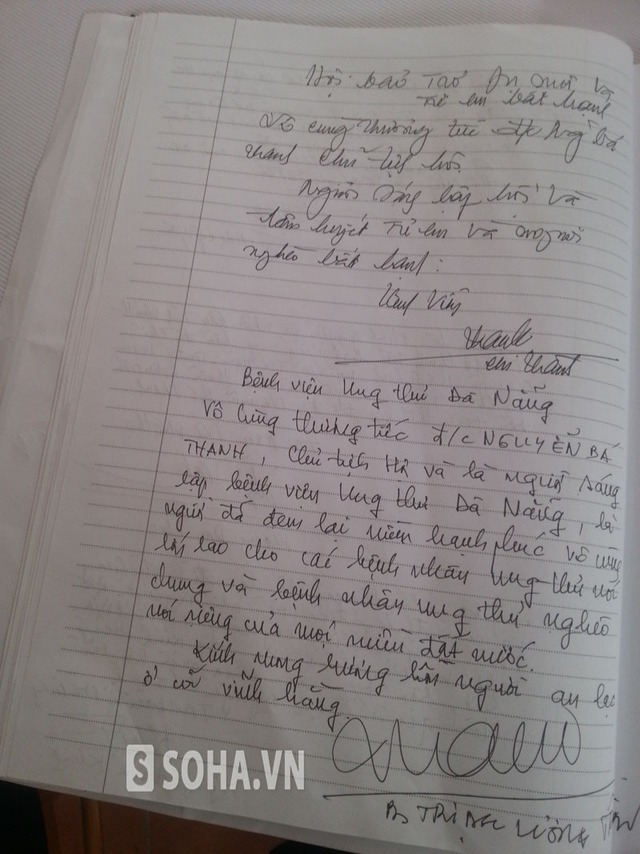 Hội bảo trợ Phụ nữ và
trẻ em bất hạnh
Vô cùng thương tiếc đ/c Ng Bá
Thanh Chủ tịch hội
Người sáng lập hội và
tâm huyết trẻ em và
nghèo bất hạnh:
Thanh
Chí Thanh
Bệnh viện Ung thư Đà Nẵng
Vô cùng thương tiếc đ/c NGUYỄN BÁ
THANH, Chủ tịch Hội và là người sáng
lập bệnh viện Ung thư Đà Nẵng, là
người đã đem lại niềm hạnh phúc vô cùng
lớn lao cho các bệnh nhân Ung thư nói
chung và bệnh nhân ung thư nghèo
nói riêng của mọi miền đất nước.
Kính mong hương hồn người an lạc
ở cõi vĩnh hằng.
BS TRỊNH LƯƠNG TRÂN
S SOHA.VN